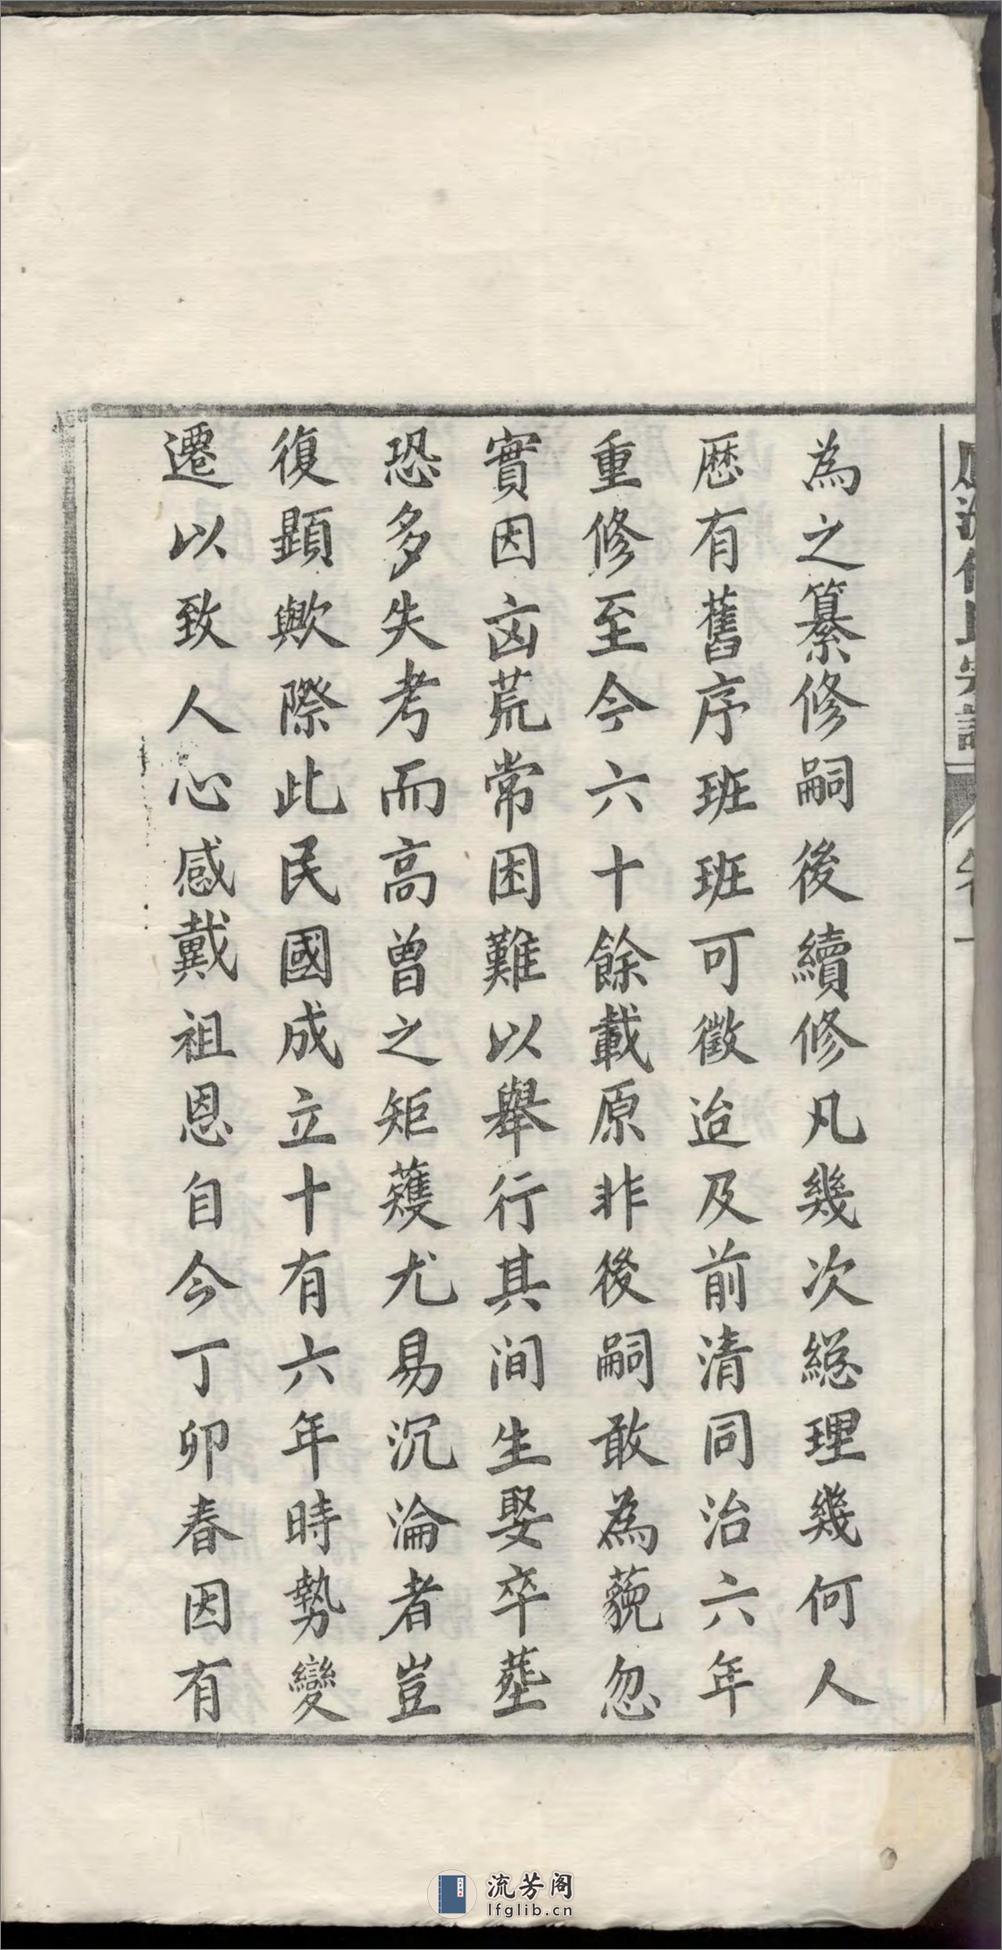 為之纂修嗣後續修凡幾次総理幾何人
厯有舊序班班可徵迨及前清同治六年
重修至今六十餘載原非後嗣敢為藐忽
實因凶荒常困難以舉行其间生娶卒塟
恐多失考而高曾之矩蒦尤易沉淪者豈
復顕歟際此民國成立十有六年時勢變
遷以致人心感戴祖恩自今丁卯春因有
流芳阁
lfglib.cn